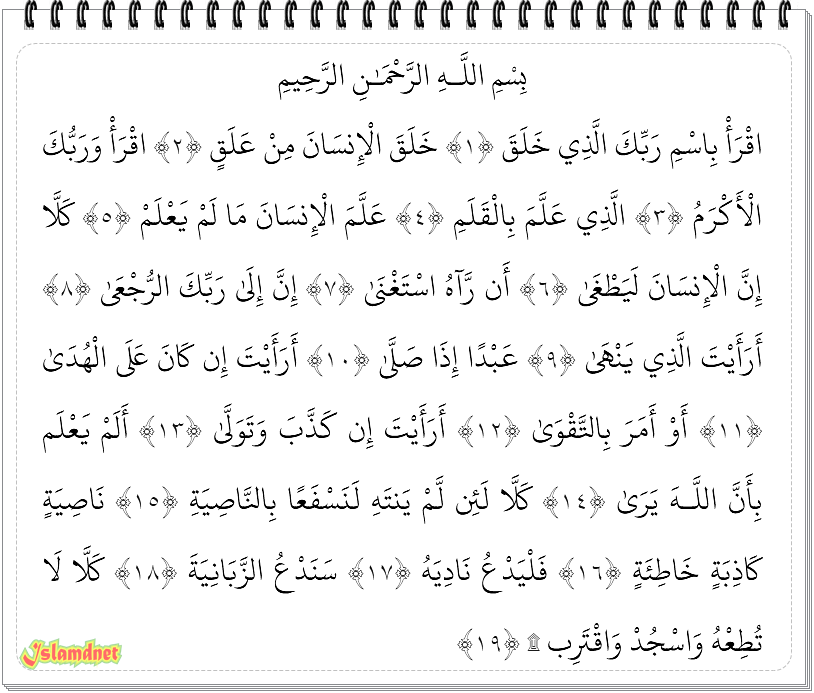 بِسْمِ اللَّـهِ الرَّحْمَـٰنِ الرَّحِيمِ
اقْرَأْ بِاسْمِ رَبِّكَ الَّذِي خَلَقَ ﴿١﴾ خَلَقَ الْإِنسَانَ مِنْ عَلَقٍ ﴿٢﴾ اقْرَأْ وَرَبُّكَ
الْأَكْرَمُ ﴿٣﴾ الَّذِي عَلَّمَ بِالْقَلَمِ ﴿٤﴾ عَلَّمَ الْإِنسَانَ مَا لَمْ يَعْلَمْ ﴿٥﴾ كَلَّا
إِنَّ الْإِنسَانَ لَيَطْغَىٰ ﴿٦﴾ أَن رَّآهُ اسْتَغْنَىٰ ﴿٧﴾ إِنَّ إِلَىٰ رَبِّكَ الرُّجْعَىٰ ﴿٨﴾
أَرَأَيْتَ الَّذِي يَنْهَىٰ ﴿٩﴾ عَبْدًا إِذَا صَلَّىٰ ﴿١٠﴾ أَرَأَيْتَ إِن كَانَ عَلَى الْهُدَىٰ
﴿١١﴾ أَوْ أَمَرَ بِالتَّقْوَىٰ ﴿١٢﴾ أَرَأَيْتَ إِن كَذَّبَ وَتَوَلَّىٰ ﴿١٣﴾ أَلَمْ يَعْلَم
بِأَنَّ اللَّـهَ يَرَىٰ ﴿١٤﴾ كَلَّا لَئِن لَّمْ يَنتَهِ لَنَسْفَعًا بِالنَّاصِيَةِ ﴿١٥﴾ نَاصِيَةٍ
كَاذِبَةٍ خَاطِئَةٍ ﴿١٦﴾ فَلْيَدْعُ نَادِيَهُ ﴿١٧﴾ سَنَدْعُ الزَّبَانِيَةَ ﴿١٨﴾ كَلَّا لَا
تُطِعْهُ وَاسْجُدْ وَاقْتَرِب ۩ ﴿١٩﴾
Islamdnet